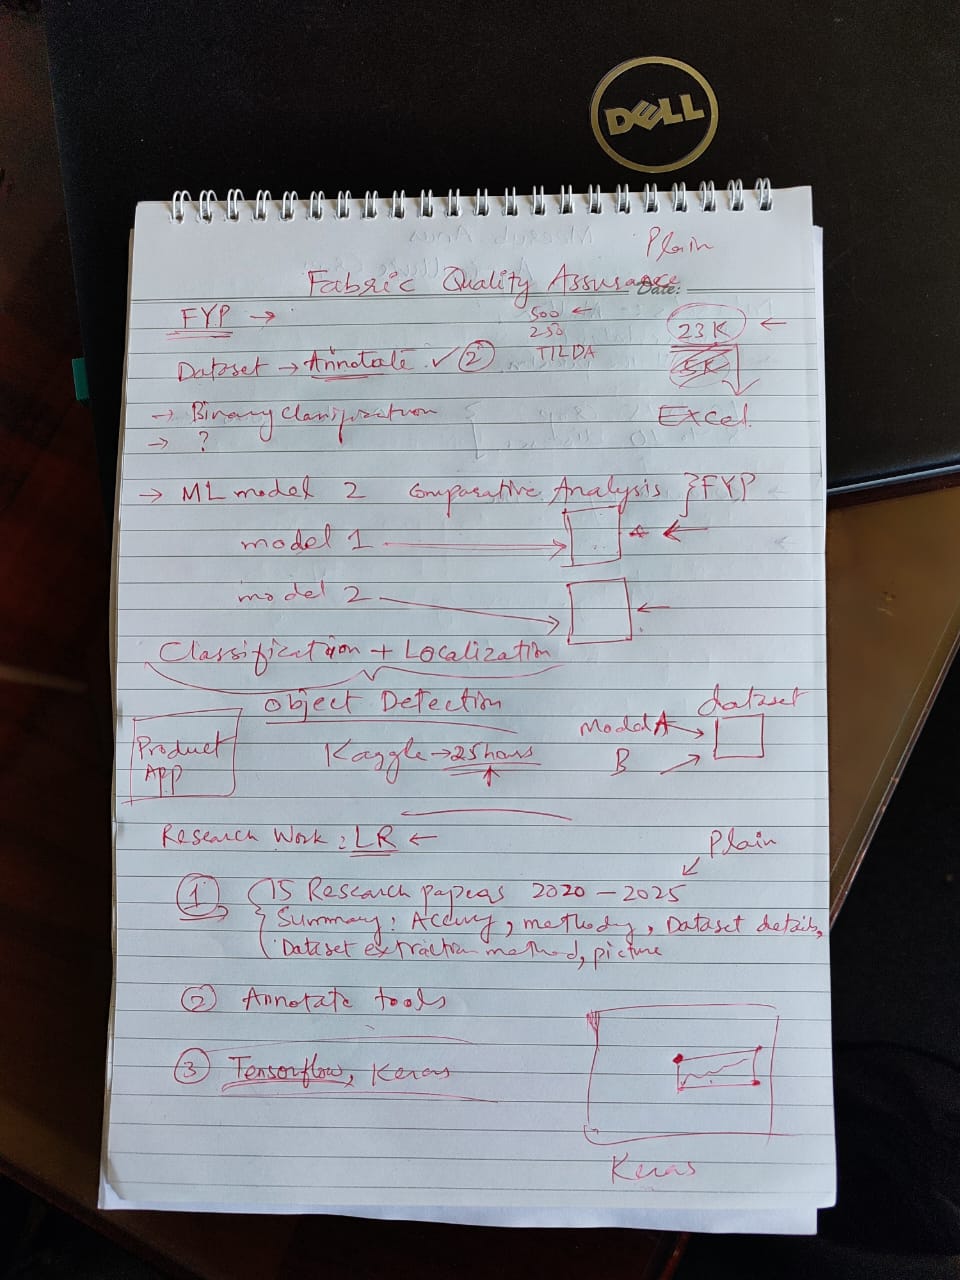 DELL
Plain
Fabric Quality Assurance
Date:
FYP →
500 ←
250
TILDA
23 K ←
Dataset → Annotate ✓ ②
→ Binary Classification
Excel
→ ?
→ ML model 2 Comparative Analysis } FYP
model 1
model 2
Classification + Localization
Object Detection
dataset
Model A
B
Product
APP
Kaggle → 25 hours
Research Work : LR ←
Plain
① 15 Research papers 2020 – 2025
Summary: , , Dataset details,
Dataset extraction method, picture
② Annotate tools
③ Tensorflow, Keras
Keras